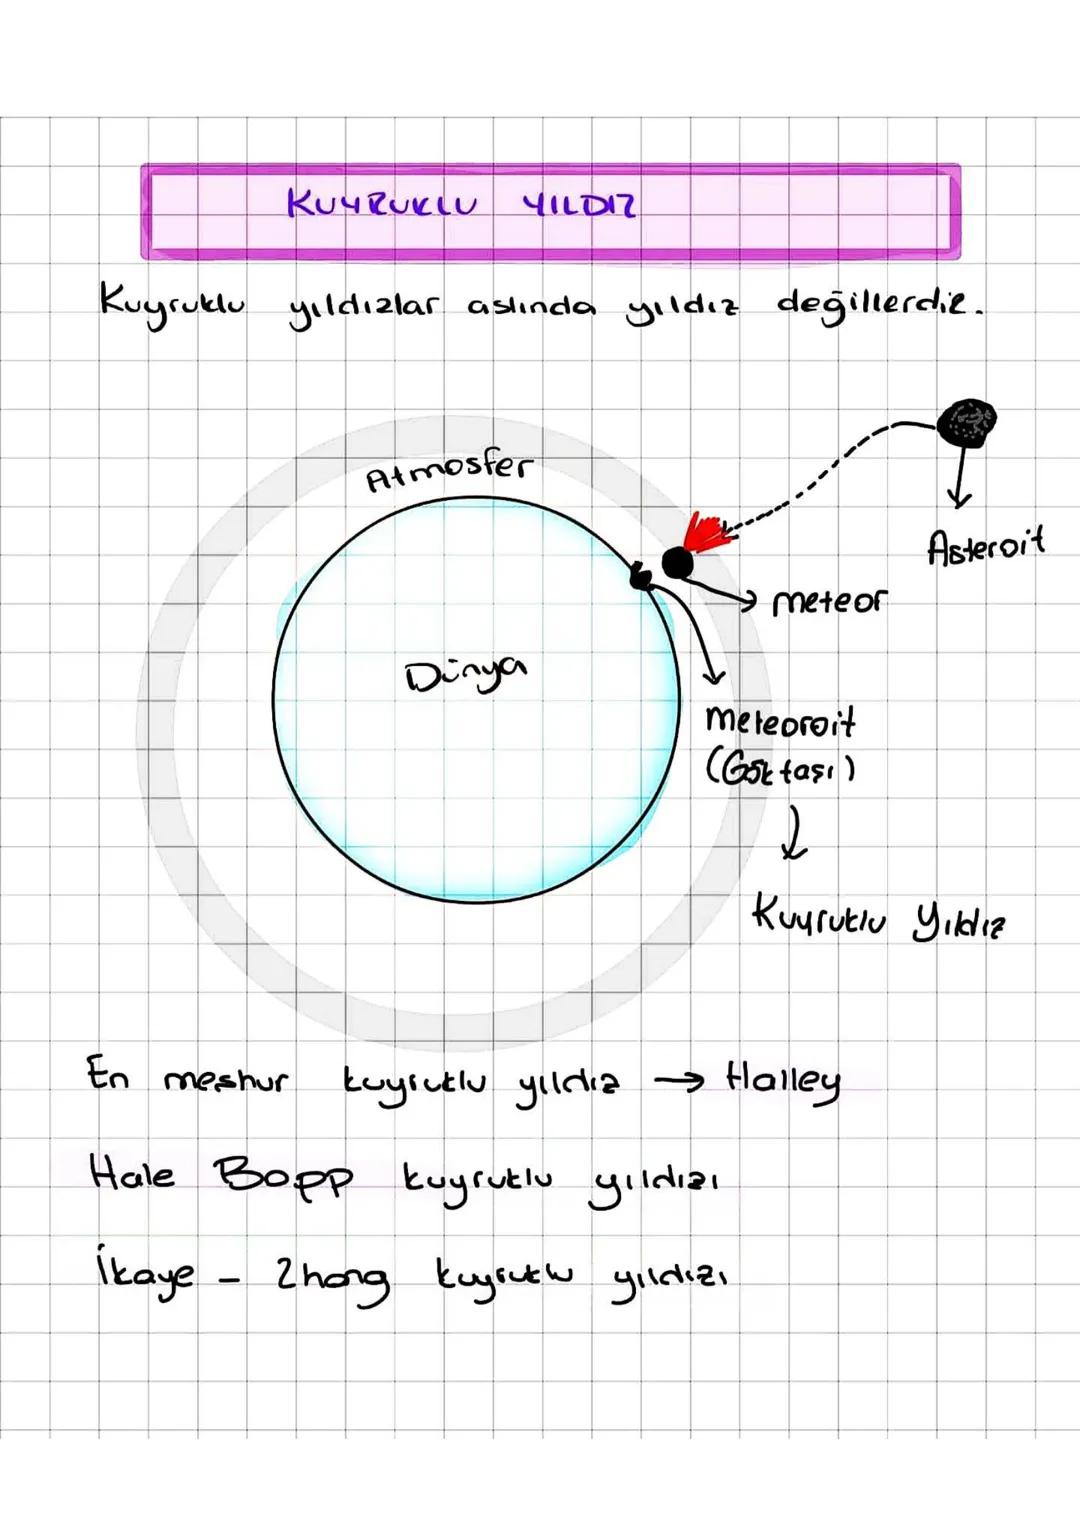 KUYRUKLU YILDIZ
Kuyruklu yıldızlar aslında yıldız değillerdir.
Atmosfer
Asteroit
meteor
Dünya
meteoroit
(Göktaşı)
Kuyruklu Yıldız
En meshur kuyruklu yıldız → Halley
Hale Bopp kuyruklu yıldızı
İkaye - Zhang kuyruklu yıldızı